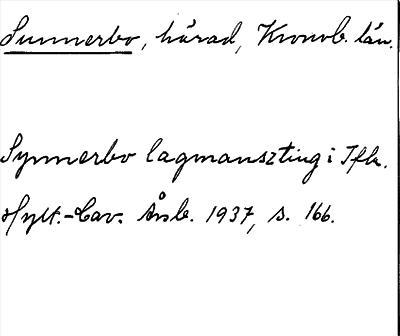 Sunnerbo, härad, Kronob. län.
Synnerbo lagmansting i Tfk.
Hylt.-Cav. Årsb. 1937, s. 166.